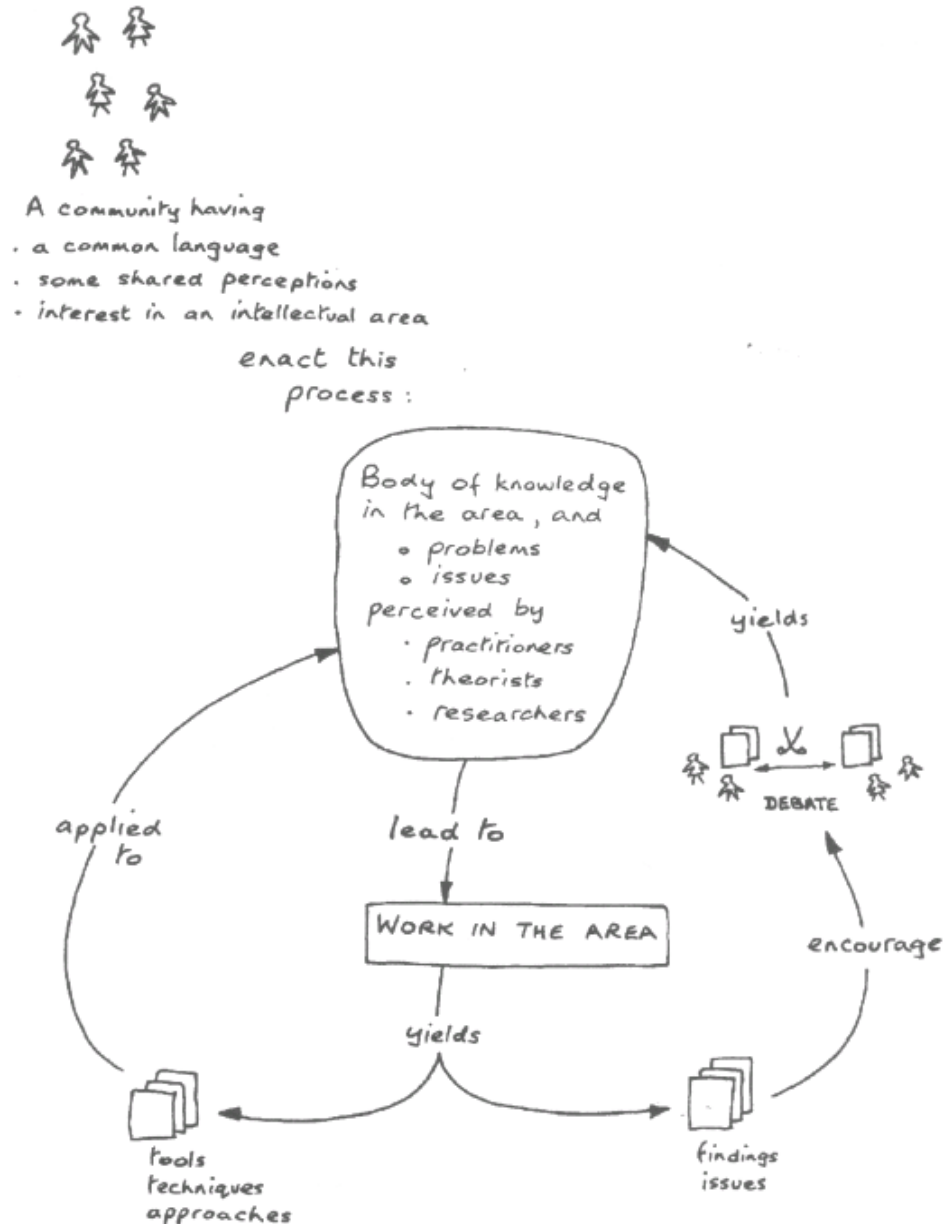 A community having
· a common language
· some shared perceptions
· interest in an intellectual area
enact this
process :
Body of knowledge
in the area, and
∘ problems
∘ issues
perceived by
· practitioners
· theorists
· researchers
yields
DEBATE
applied
to
lead to
WORK IN THE AREA
encourage
yields
tools
techniques
approaches
findings
issues